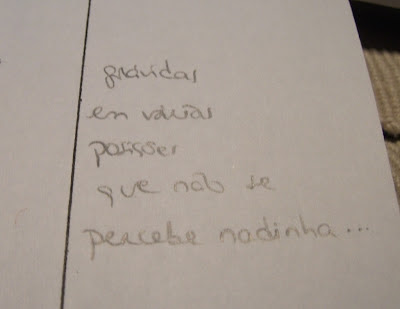 grávidas
en várias
posições
que não se
percebe nadinha...